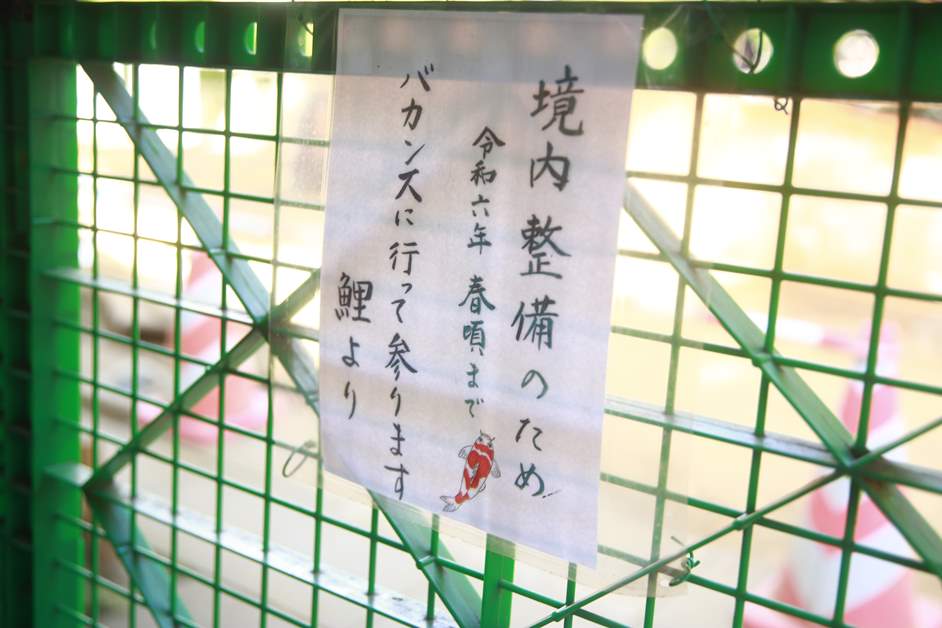 境内整備のため
令和六年 春頃まで
バカンスに行って参ります
鯉より